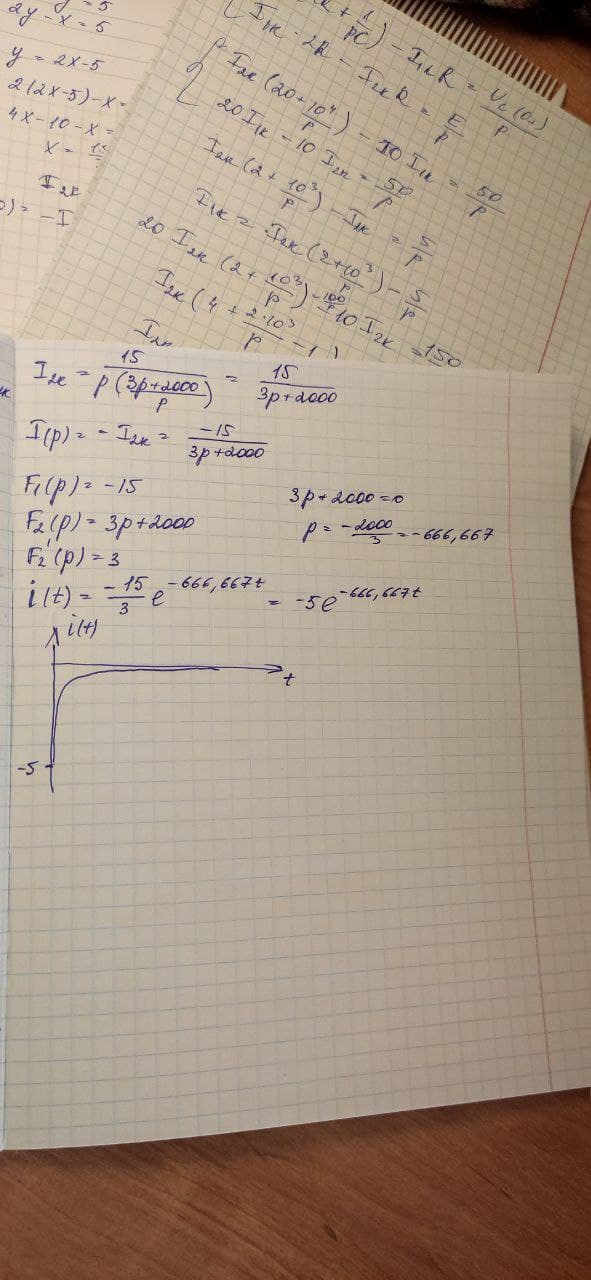 = 5
2y - x = 5
y = 2x - 5
2(2x-5) - x =
4x - 10 - x =
x =
I₂ₖ
) = - I
+ 1/pC) - I₁ₖR = Uc(0₋)/p
I₁ₖ · 2R - I₂ₖR = E/p
I₂ₖ(20 + 10⁴/p) - 10 I₁ₖ = 50/p
20 I₁ₖ - 10 I₂ₖ = 50/p
I₂ₖ(2 + 10³/p) - I₁ₖ = 5/p
I₁ₖ = I₂ₖ(2 + 10³/p) - 5/p
20 I₂ₖ(2 + 10³/p) - 100/p - 10 I₂ₖ = 150
I₂ₖ(4 + 2·10³/p - 1)
I₂ₖ
I₂ₖ = 15/(p((3p+2000)/p)) = 15/(3p+2000)
I(p) = - I₂ₖ = -15/(3p+2000)
F₁(p) = -15 3p + 2000 = 0
F₂(p) = 3p + 2000 p = -2000/3 = -666,667
F₂'(p) = 3
i(t) = -15/3 e^(-666,667t) = -5e^(-666,667t)
i(t)
t
-5